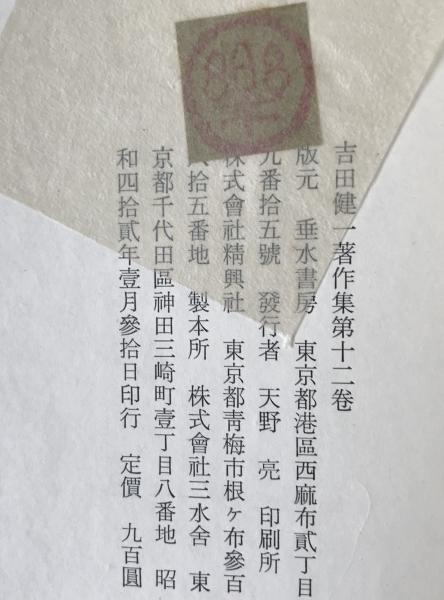 吉田健一著作集第十二卷
版元　垂水書房　東京都港區西麻布貳丁目
九番拾五號　發行者　天野　亮　印刷所
株式會社精興社　東京都青梅市根ヶ布參百
八拾五番地　製本所　株式會社三水舍　東
京都千代田區神田三崎町壹丁目八番地　昭
和四拾貳年壹月參拾日印行　定價　九百圓